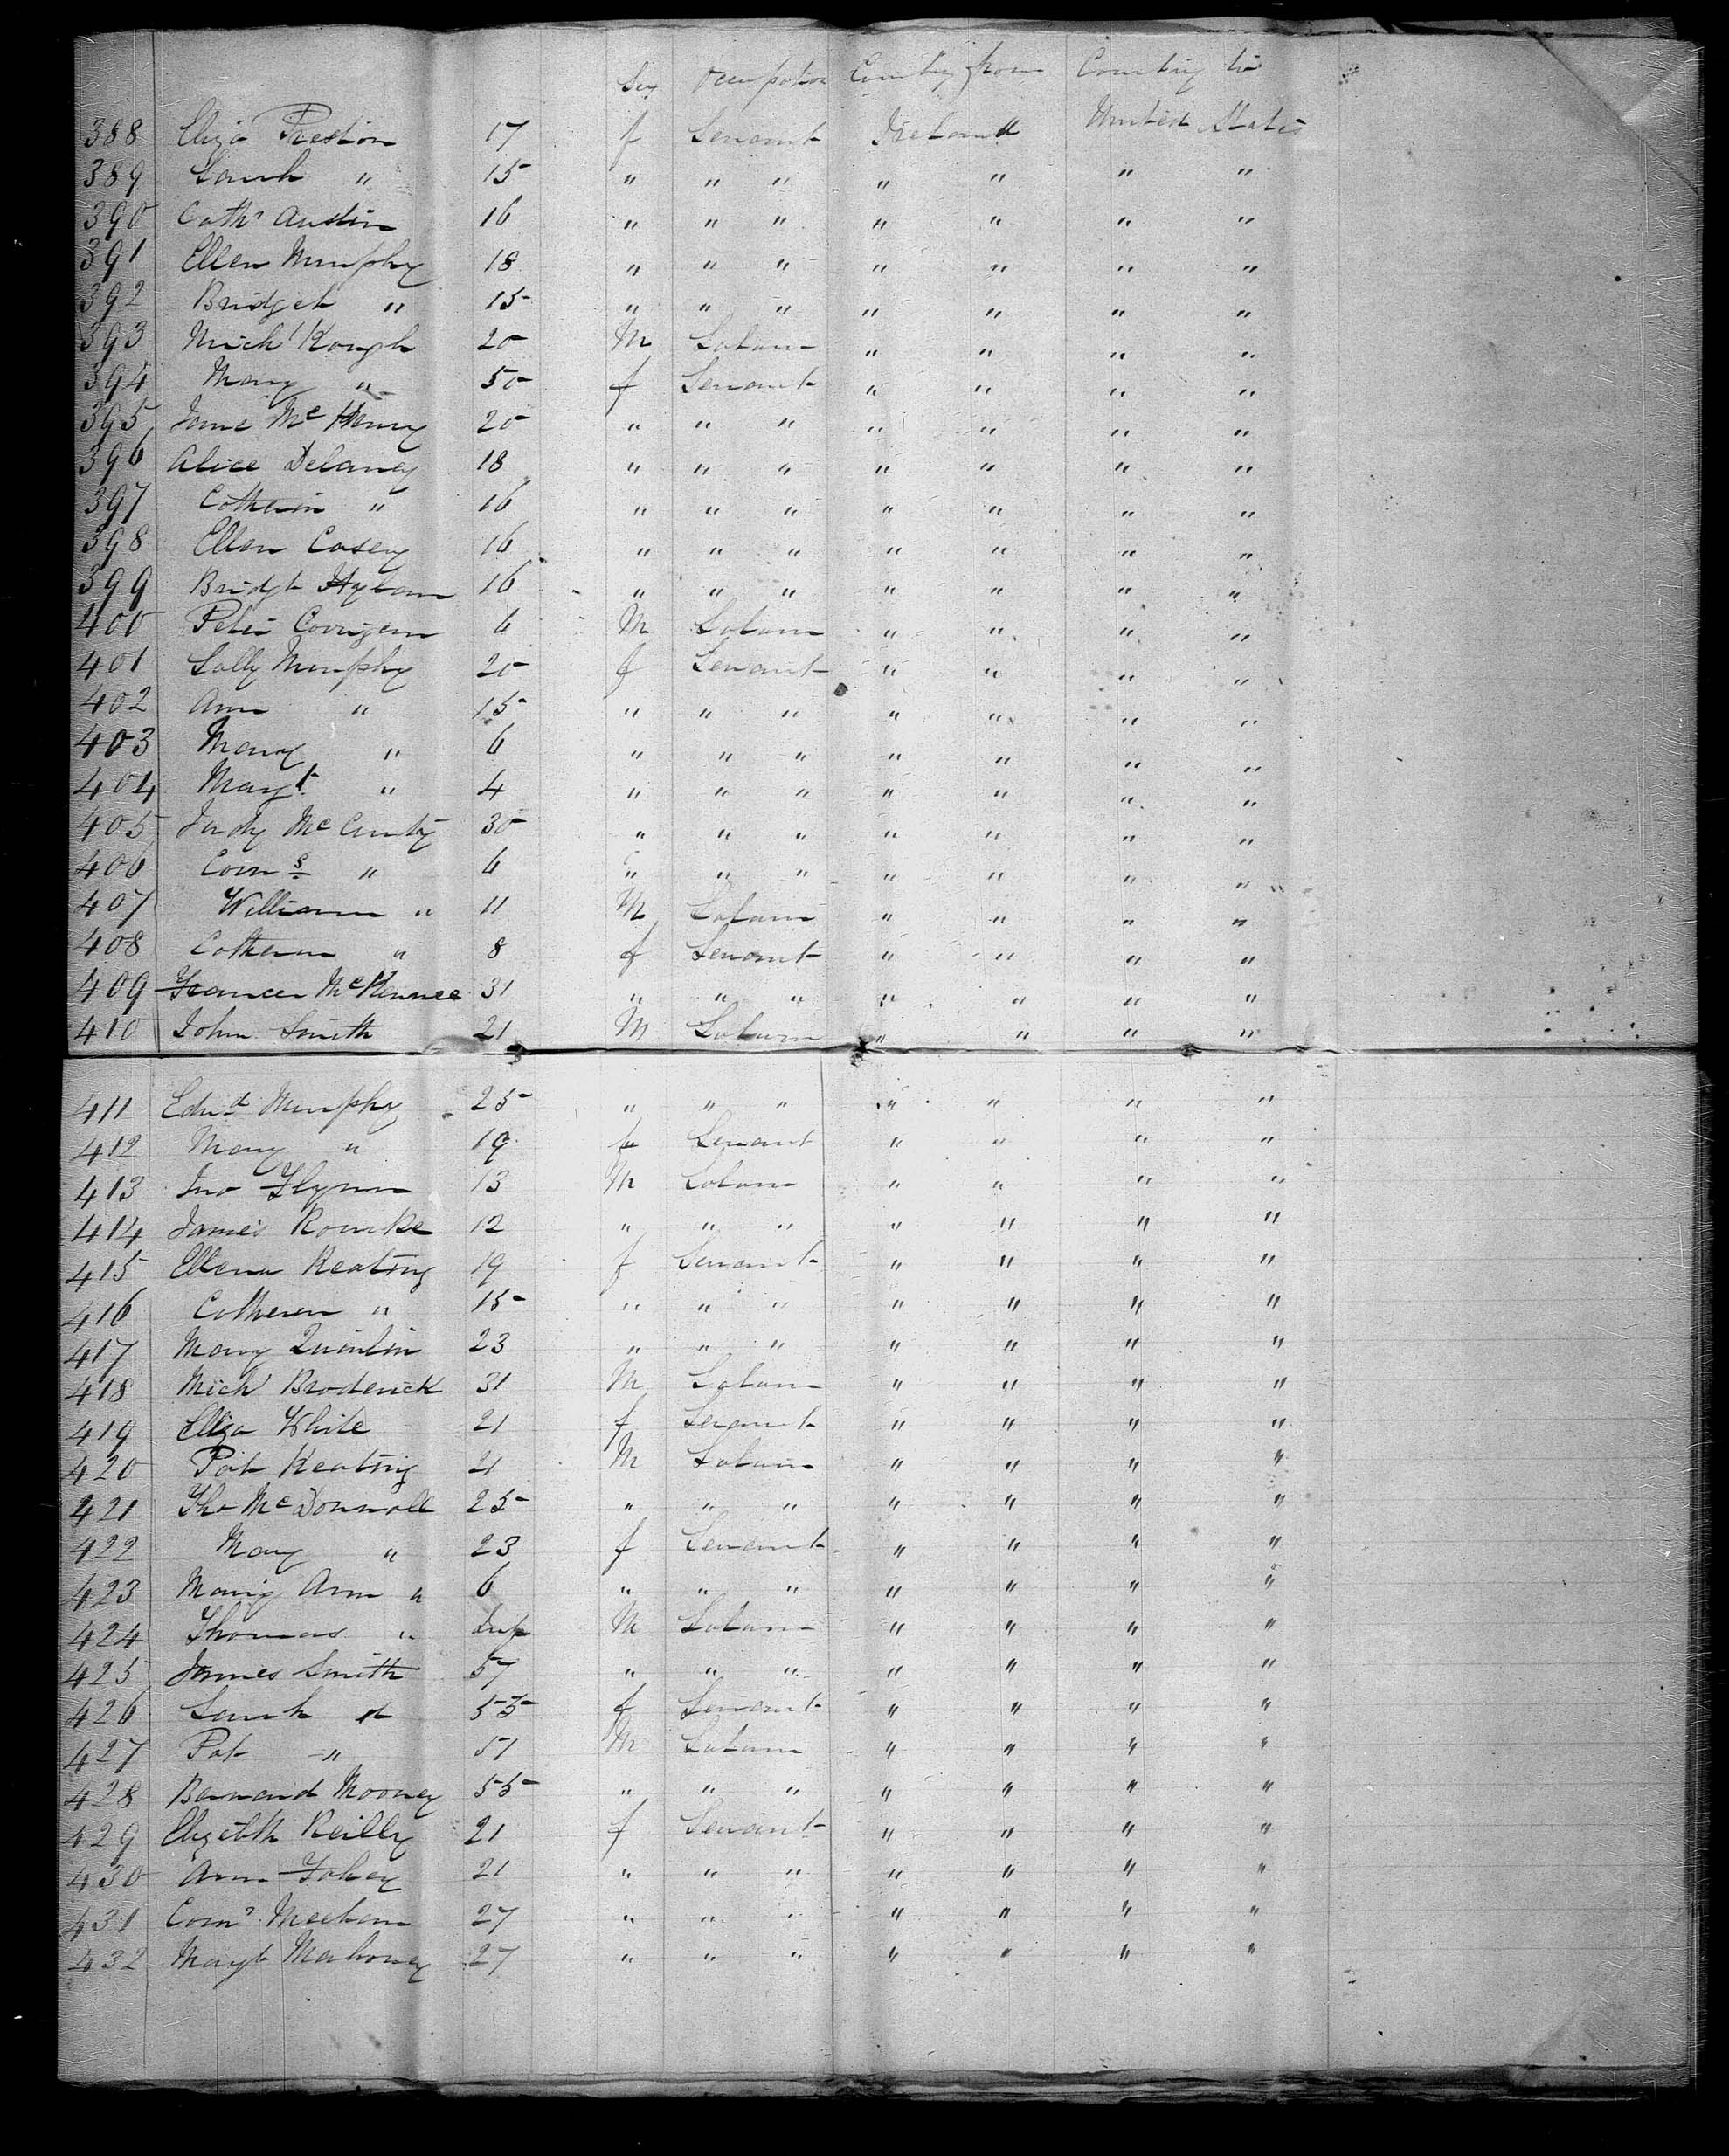 Sex Occupation Country from Country to
388 Eliza Preston 17 f Servant Ireland United States
389 Sarah " 15 " " " " " " "
390 Cathe Austin 16 " " " " " " "
391 Ellen Murphy 18 " " " " " " "
392 Bridget " 15 " " " " " " "
393 Michl Keough 20 M Labour " " " "
394 Mary " 50 f Servant " " " "
395 Jane McHenry 20 " " " " " " "
396 Alice Delaney 18 " " " " " " "
397 Catherin " 16 " " " " " " "
398 Ellen Casey 16 " " " " " " "
399 Bridgt 16 " " " " " " "
400 Peter Corrigan 6 M Labour " " " "
401 Sally Murphy 20 f Servant " " " "
402 Ann " 15 " " " " " " "
403 Mary " 6 " " " " " " "
404 Margt " 4 " " " " " " "
405 Judy 30 " " " " " " "
406 " 6 " " " " " " "
407 William " 11 M Labour " " " "
408 Catheren " 8 f Servant " " " "
409 Frances McKennee 31 " " " " " " "
410 John Smith 21 M Labour " " " "
411 Edwd Murphy 25 " " " " " " "
412 Mary " 19 f Servant " " " "
413 Jno Flynn 13 M Labour " " " "
414 James Rourke 12 " " " " " " "
415 Ellena Keating 19 f Servant " " " "
416 Catheren " 15 " " " " " " "
417 Mary Quinlin 23 " " " " " " "
418 Michl Broderick 31 M Labour " " " "
419 Eliza White 21 f Servant " " " "
420 Pat Keating 21 M Labour " " " "
421 Tho McDonnall 25 " " " " " " "
422 Mary " 23 f Servant " " " "
423 Mary Ann " 6 " " " " " " "
424 Thomas " Inf M Labour " " " "
425 James Smith 57 " " " " " " "
426 Sarah " 55 f Servant " " " "
427 Pat " 51 M Labour " " " "
428 Bernard Mooney 55 " " " " " " "
429 Elizebth Reilly 21 f Servant " " " "
430 Ann Fahey 21 " " " " " " "
431 Meehan 27 " " " " " " "
432 Margt Mahoney 27 " " " " " " "